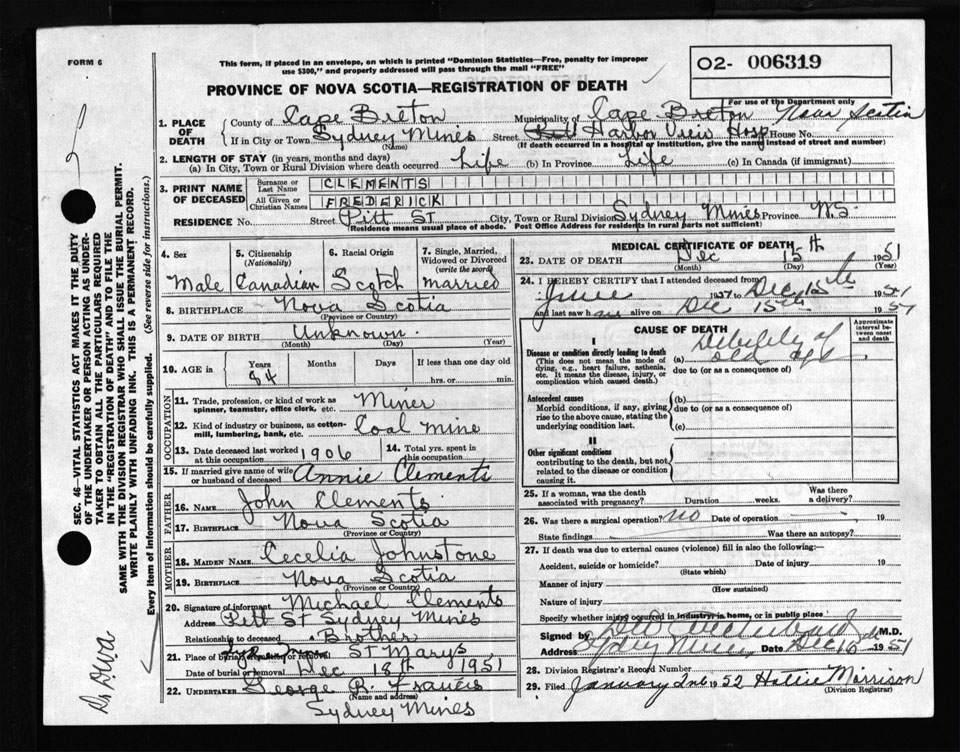 FORM 6
This form, if placed in an envelope, on which is printed "Dominion Statistics—Free, penalty for improper
use $300," and properly addressed will pass through the mail "FREE"
02- 006319
For use of the Department only
PROVINCE OF NOVA SCOTIA—REGISTRATION OF DEATH
1. PLACE OF DEATH { County of Cape Breton Municipality of Cape Breton Nova Scotia
If in City or Town Sydney Mines Street Harbor View Hosp House No.
(Name) (If death occurred in a hospital or institution, give the name instead of street and number)
2. LENGTH OF STAY (in years, months and days)
(a) In City, Town or Rural Division where death occurred Life (b) In Province Life (c) In Canada (if immigrant)
3. PRINT NAME OF DECEASED { Surname or Last Name CLEMENTS
All Given or Christian Names FREDERICK
RESIDENCE No. Street Pitt St City, Town or Rural Division Sydney Mines Province N.S.
(Residence means usual place of abode. Post Office Address for residents in rural parts not sufficient)
4. Sex 5. Citizenship (Nationality) 6. Racial Origin 7. Single, Married, Widowed or Divorced (write the word)
Male Canadian Scotch married
8. BIRTHPLACE Nova Scotia
(Province or Country)
9. DATE OF BIRTH Unknown.
(Month) (Day) (Year)
10. AGE in { Years Months Days If less than one day old
84 hrs. or min.
OCCUPATION
11. Trade, profession, or kind of work as spinner, teamster, office clerk, etc. Miner
12. Kind of industry or business, as cotton-mill, lumbering, bank, etc. Coal mine
13. Date deceased last worked at this occupation 1906 14. Total yrs. spent in this occupation
15. If married give name of wife or husband of deceased Annie Clements
FATHER
16. NAME John Clements
17. BIRTHPLACE Nova Scotia
(Province or Country)
MOTHER
18. MAIDEN NAME Cecelia Johnstone
19. BIRTHPLACE Nova Scotia
(Province or Country)
20. Signature of informant Michael Clements
Address Pitt St Sydney Mines
Relationship to deceased Brother
21. Place of burial, cremation or removal St Marys
Date of burial or removal Dec 18th 1951
22. UNDERTAKER George R. Francis
(Name and address)
Sydney Mines
MEDICAL CERTIFICATE OF DEATH
23. DATE OF DEATH Dec 15th 1951
(Month) (Day) (Year)
24. I HEREBY CERTIFY that I attended deceased from
June to Dec 15th 1951
and last saw h alive on Dec 15th 1951
CAUSE OF DEATH
Approximate interval between onset and death
I
Disease or condition directly leading to death (a) Debility of old age
(This does not mean the mode of dying, e.g., heart failure, asthenia, etc. It means the disease, injury, or complication which caused death.)
due to (or as a consequence of)
Antecedent causes
Morbid conditions, if any, giving rise to the above cause, stating the underlying condition last.
(b)
due to (or as a consequence of)
(c)
II
Other significant conditions
contributing to the death, but not related to the disease or condition causing it.
25. If a woman, was the death associated with pregnancy? Duration weeks. Was there a delivery?
26. Was there a surgical operation? no Date of operation , 19
State findings Was there an autopsy?
27. If death was due to external causes (violence) fill in also the following:—
Accident, suicide or homicide? Date of injury 19
(State which)
Manner of injury
(How sustained)
Nature of injury
Specify whether injury occurred in industry, in home, or in public place
Signed by M.D.
Address Sydney Mines Date Dec 16 1951
28. Division Registrar's Record Number
29. Filed January 2nd 1952 Hattie Morrison
(Division Registrar)
SEC. 46—VITAL STATISTICS ACT MAKES IT THE DUTY
OF THE UNDERTAKER OR PERSON ACTING AS UNDER-
TAKER TO OBTAIN ALL THE PARTICULARS REQUIRED
IN THE "REGISTRATION OF DEATH" AND TO FILE THE
SAME WITH THE DIVISION REGISTRAR WHO SHALL ISSUE THE BURIAL PERMIT.
WRITE PLAINLY WITH UNFADING INK. THIS IS A PERMANENT RECORD.
Every item of information should be carefully supplied. (See reverse side for instructions.)